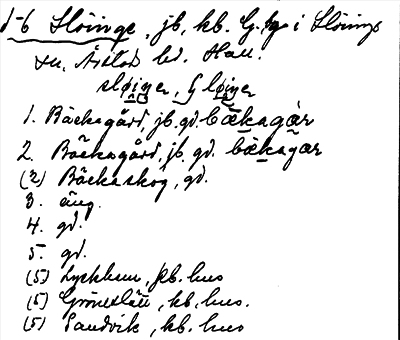 1-6 Slöinge, jb, kb. G. by i Slöinge
sn. Årstad hd. Hall.
sløiŋer, G løiŋer
1. Bäcksgård, jb. gd. bækagår
2. Bäcksgård, jb. gd. bækagær
(2) Bäckaskog, gd.
3. äng.
4. gd.
5. gd.
(5) Lyckhem, kb. hus
(5) Grönslätt, kb. hus.
(5) Sandvik, kb. hus